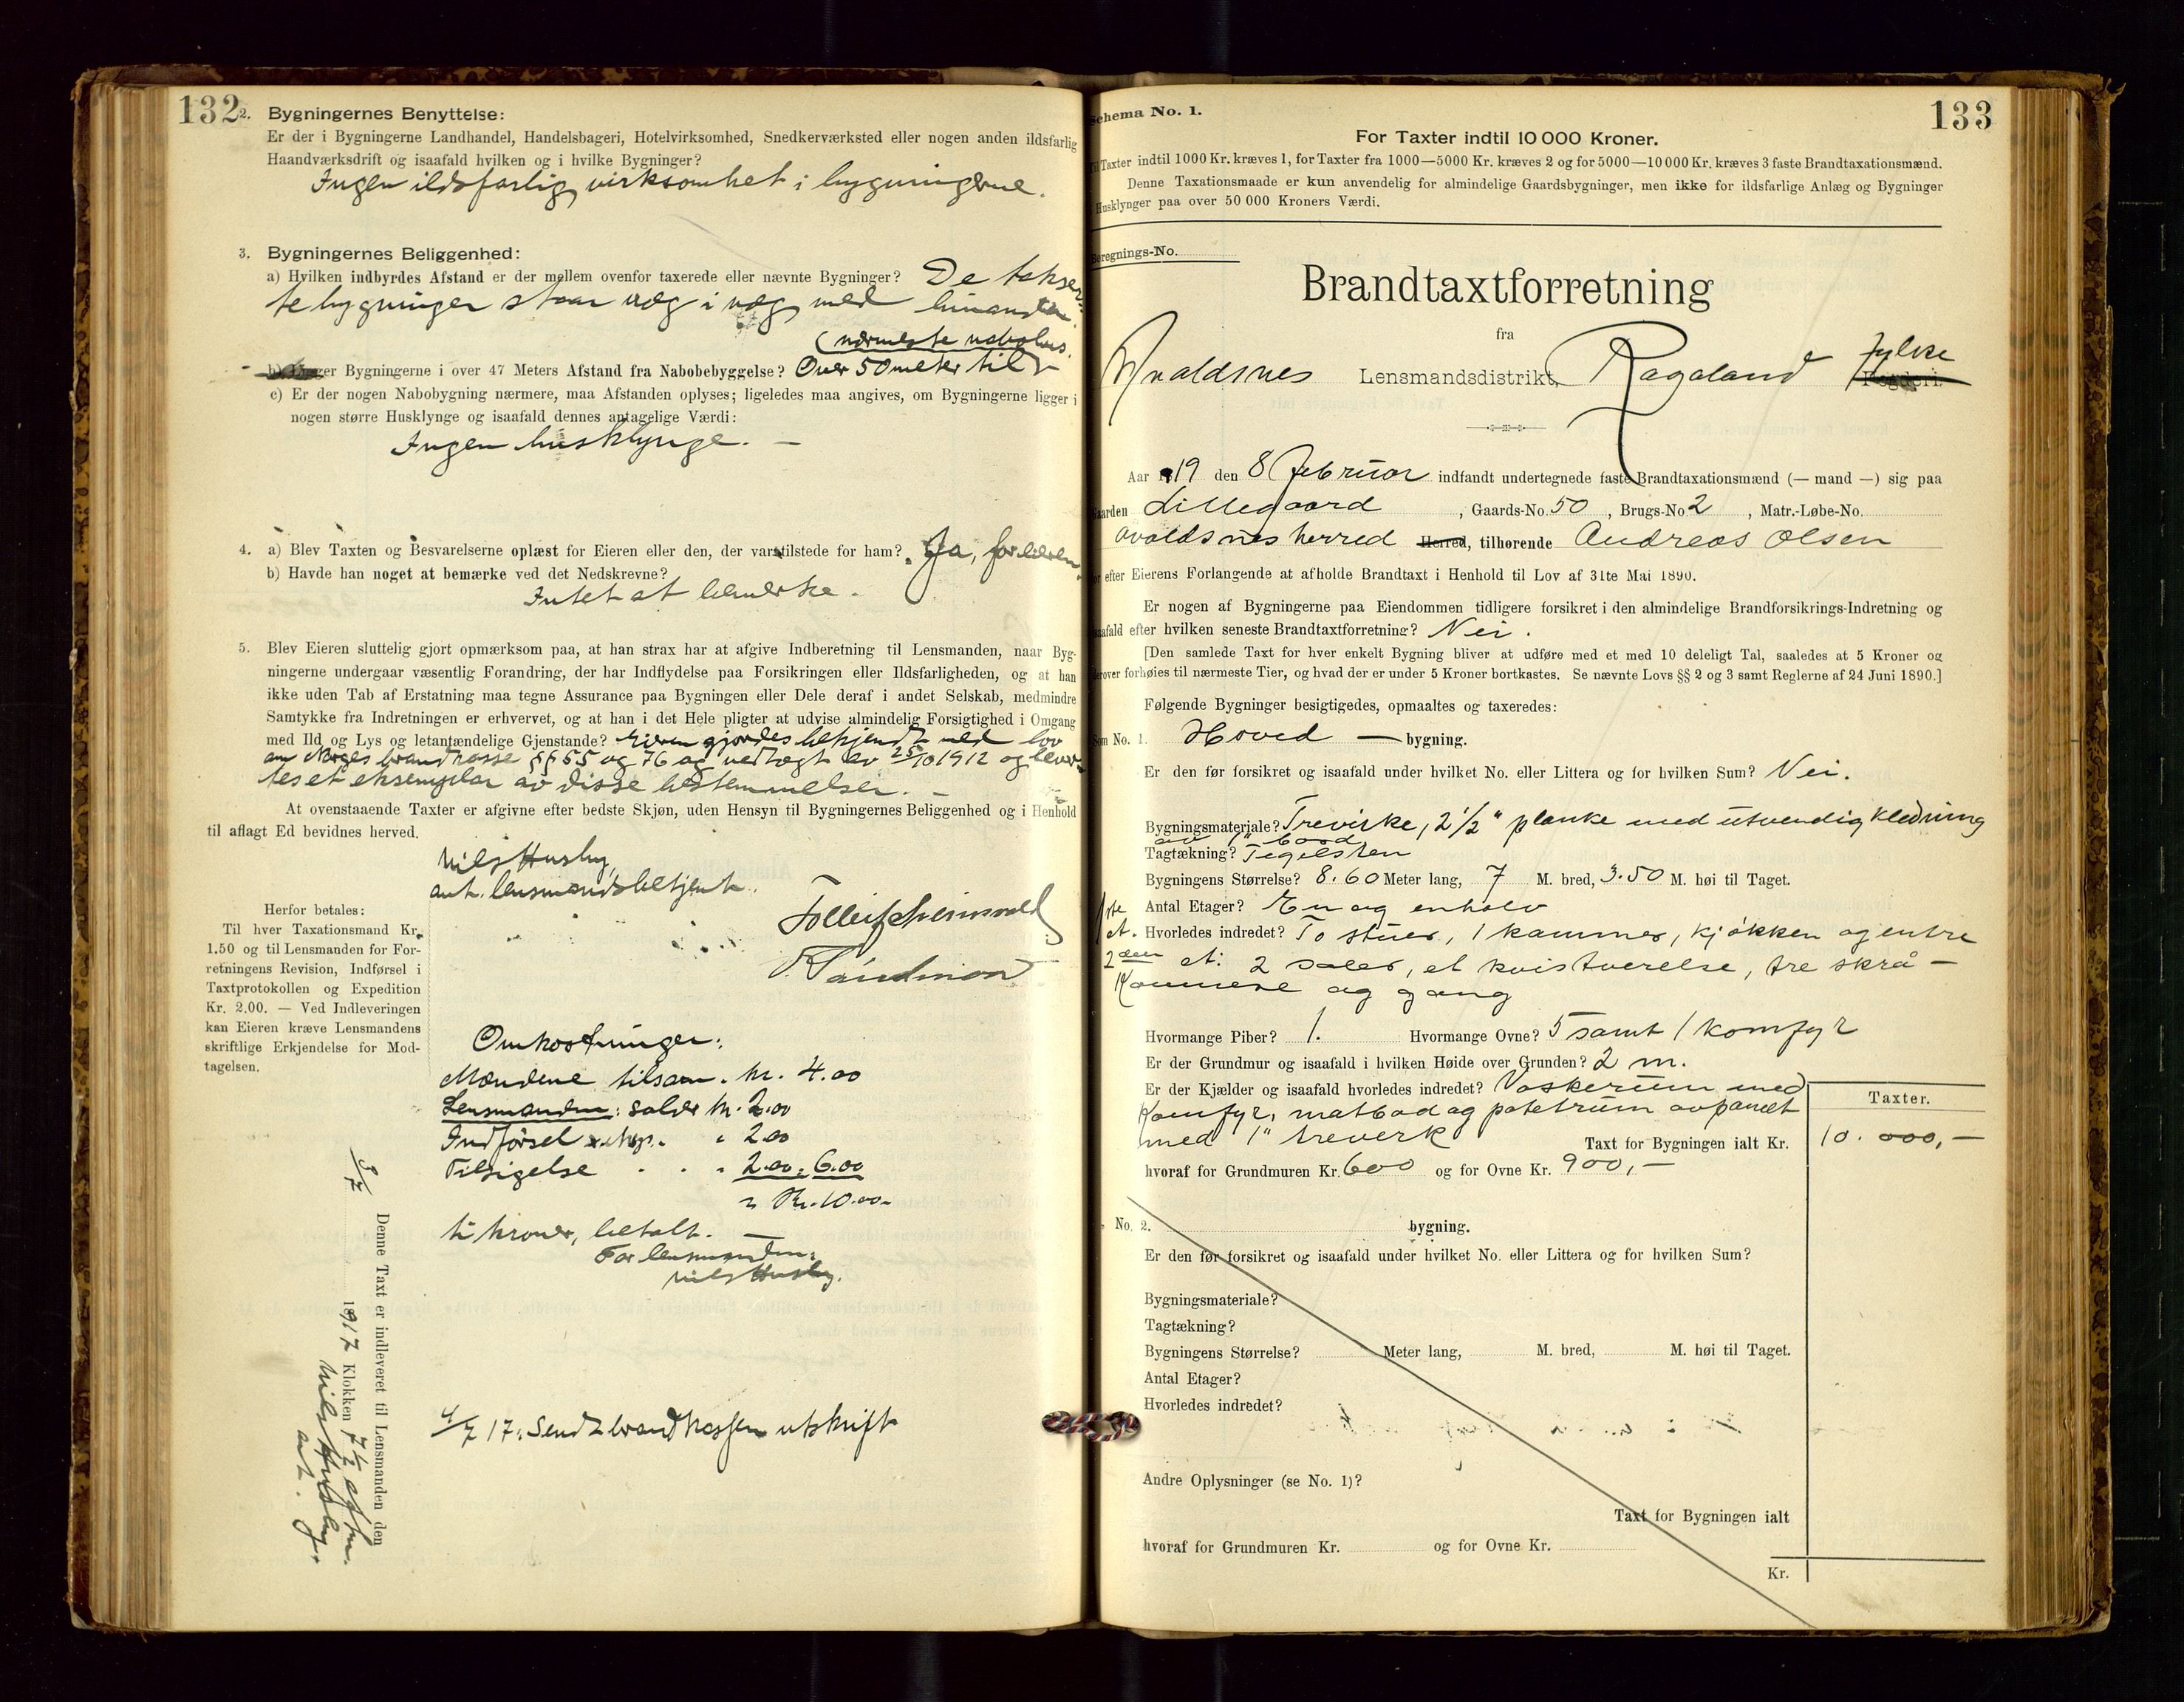 132
2. Bygningernes Benyttelse:
Er der i Bygningerne Landhandel, Handelsbageri, Hotelvirksomhed, Snedkerværksted eller nogen anden ildsfarlig
Haandværksdrift og isaafald hvilken og i hvilke Bygninger?
Ingen ildsfarlig virksomhet i bygningerne.
3. Bygningernes Beliggenhed:
a) Hvilken indbyrdes Afstand er der mellem ovenfor taxerede eller nævnte Bygninger? De takser-
te bygninger staar væg i væg med hinanden.
(nærmeste nabohus.
b) Ligger Bygningerne i over 47 Meters Afstand fra Nabobebyggelse? Over 50 meter til
c) Er der nogen Nabobygning nærmere, maa Afstanden oplyses; ligeledes maa angives, om Bygningerne ligger i
nogen større Husklynge og isaafald dennes antagelige Værdi:
Ingen husklynge. —
4. a) Blev Taxten og Besvarelserne oplæst for Eieren eller den, der var tilstede for ham? Ja, for eieren.
b) Havde han noget at bemærke ved det Nedskrevne?
Intet at bemerke.
5. Blev Eieren sluttelig gjort opmærksom paa, at han strax har at afgive Indberetning til Lensmanden, naar Byg-
ningerne undergaar væsentlig Forandring, der har Indflydelse paa Forsikringen eller Ildsfarligheden, og at han
ikke uden Tab af Erstatning maa tegne Assurance paa Bygningen eller Dele deraf i andet Selskab, medmindre
Samtykke fra Indretningen er erhvervet, og at han i det Hele pligter at udvise almindelig Forsigtighed i Omgang
med Ild og Lys og letantændelige Gjenstande? Eieren gjordes bekjendt med lov
om Norges brandkasse §§ 55 og 76 og vedtegt av 25/10 1912 og lever-
tes et eksemplar av disse bestemmelser. —
At ovenstaaende Taxter er afgivne efter bedste Skjøn, uden Hensyn til Bygningernes Beliggenhed og i Henhold
til aflagt Ed bevidnes herved.
Nils Husby,
aut. lensmandsbetjent.
Herfor betales:
Til hver Taxationsmand Kr.
1.50 og til Lensmanden for For-
retningens Revision, Indførsel i
Taxtprotokollen og Expedition
Kr. 2.00. — Ved Indleveringen
kan Eieren kræve Lensmandens
skriftlige Erkjendelse for Mod-
tagelsen.
Omkostninger:
Mændene tilsam. kr. 4.00
Lensmanden: salær kr. 2.00
Indførsel " 2.00
Tilsigelse . . " 2.00 = 6.00
= Kr. 10.00
ti kroner, betalt. —
For lensmanden:
Nils Husby.
Denne Taxt er indleveret til Lensmanden den 3/7
1917 Klokken 7 1/2 efm.
Nils Husby.
aut.
4/7 17. Sendt brandkassen utskrift
133
Schema No. 1.
For Taxter indtil 10 000 Kroner.
Til Taxter indtil 1000 Kr. kræves 1, for Taxter fra 1000—5000 Kr. kræves 2 og for 5000—10 000 Kr. kræves 3 faste Brandtaxationsmænd.
Denne Taxationsmaade er kun anvendelig for almindelige Gaardsbygninger, men ikke for ildsfarlige Anlæg og Bygninger
Husklynger paa over 50 000 Kroners Værdi.
Beregnings-No.
Brandtaxtforretning
fra
Avaldsnes Lensmandsdistrikt, Rogaland fylke Fogderi.
Aar 1919 den 8 Februar indfandt undertegnede faste Brandtaxationsmænd (— mand —) sig paa
Gaarden Lillegaard, Gaards-No. 50, Brugs-No. 2, Matr.-Løbe-No.
Avaldsnes herred Herred, tilhørende Andreas Olsen
for efter Eierens Forlangende at afholde Brandtaxt i Henhold til Lov af 31te Mai 1890.
Er nogen af Bygningerne paa Eiendommen tidligere forsikret i den almindelige Brandforsikrings-Indretning og
isaafald efter hvilken seneste Brandtaxtforretning? Nei.
[Den samlede Taxt for hver enkelt Bygning bliver at udføre med et med 10 deleligt Tal, saaledes at 5 Kroner og
derover forhøies til nærmeste Tier, og hvad der er under 5 Kroner bortkastes. Se nævnte Lovs §§ 2 og 3 samt Reglerne af 24 Juni 1890.]
Følgende Bygninger besigtigedes, opmaaltes og taxeredes:
Som No. 1. Hoved — bygning.
Er den før forsikret og isaafald under hvilket No. eller Littera og for hvilken Sum? Nei.
Bygningsmateriale? Trevirke, 2 1/2" planke med utvendig kledning
av 1" bord
Tagtækning? Teglsten
Bygningens Størrelse? 8.60 Meter lang, 7 M. bred, 3.50 M. høi til Taget.
Antal Etager? En og enhalv
1ste et. Hvorledes indredet? To stuer, 1 kammer, kjøkken og entre
2den et: 2 saler, et kvistverelse, tre skrå-
kammere og gang
Hvormange Piber? 1. Hvormange Ovne? 5 samt 1 komfyr
Er der Grundmur og isaafald i hvilken Høide over Grunden? 2 m.
Er der Kjælder og isaafald hvorledes indredet? Vaskerum med
komfyr, matbod og potetrum avpanelt
med 1" treverk
Taxter.
Taxt for Bygningen ialt Kr. 10.000,—
hvoraf for Grundmuren Kr. 600 og for Ovne Kr. 900,—
No. 2. bygning.
Er den før forsikret og isaafald under hvilket No. eller Littera og for hvilken Sum?
Bygningsmateriale?
Tagtækning?
Bygningens Størrelse? Meter lang, M. bred, M. høi til Taget.
Antal Etager?
Hvorledes indredet?
Andre Oplysninger (se No. 1)?
Taxt for Bygningen ialt
hvoraf for Grundmuren Kr. og for Ovne Kr.
Kr.